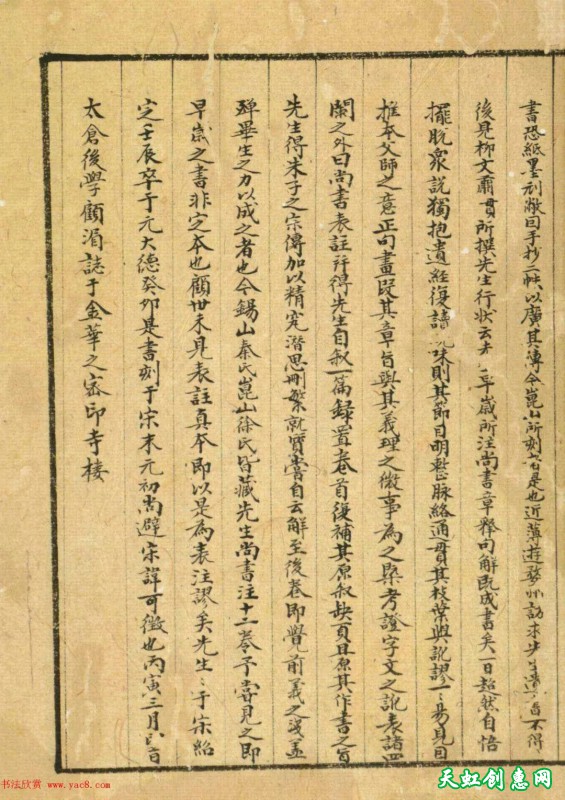 書恐紙墨刓敝因手抄二帙以廣其傳今崑山所刻者是也近薄遊婺州訪求步不得
後見柳文肅貫所撰先生行状云先早歲所注尚書章釋句解既成書矣一日超然自悟
擺脱衆説獨抱遺經復讀味則其節目明整脉絡通貫其枝葉與訛謬一〻易見因
推本父師之意正句畫段其章旨與其義理之微事為之槩考證字文之訛表諸四
闌之外曰尚書表註并得先生自叙一篇録置卷首復補其原叙缺頁且原其作書之旨
先生得朱子之宗傳加以精究潛思刪繁就實嘗自云解至後卷即覺前義之淺盖
殫畢生之力以成之者也今錫山秦氏崑山徐氏皆藏先生尚書注十二卷予嘗見之即
早歲之書非定本也顧世未見表註真本即以是為表注謬矣先生〻于宋紹
定壬辰卒于元大德癸卯是書刻于宋末元初尚避宋諱可徵也丙寅三月旨
太倉後學顧湄誌于金華之密印寺樓
书法欣赏 www.yac8.com
天虹创惠网